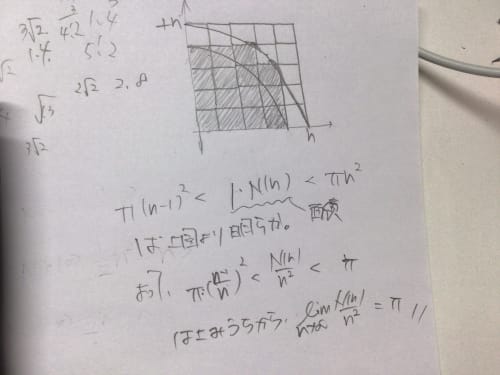 3√2 4.2 1.4
1.4. 5.2
2√2 2.8
√3
3√2
n
n
π(n-1)² < 1·N(n) < πn²
面積
は上図より明らか。
よって、π·(n-1/n)² < N(n)/n² < π
はさみうちから、lim n→∞ N(n)/n² = π //